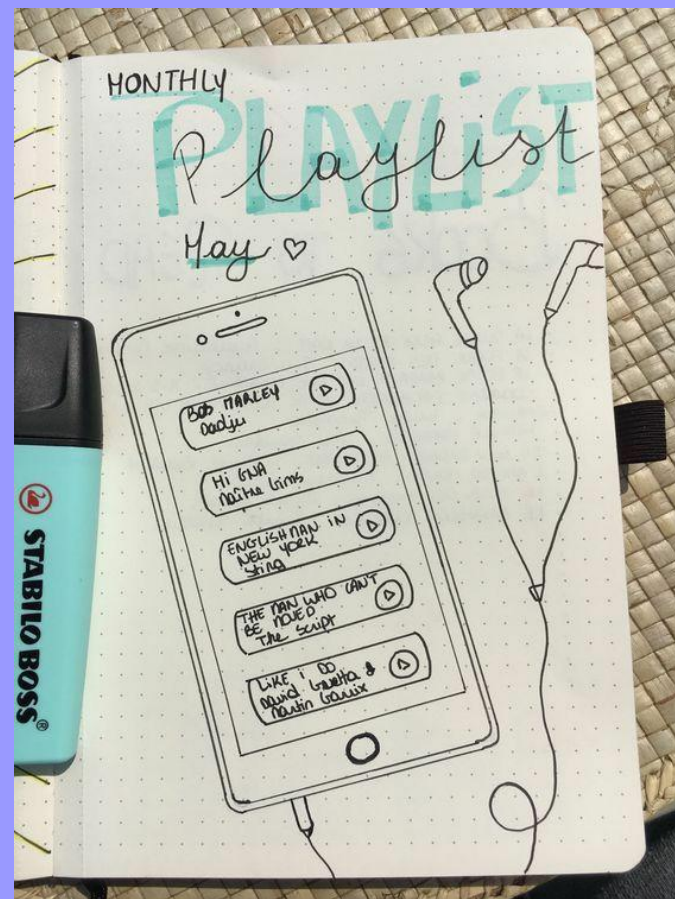 MONTHLY
PLAYLiST
Playlist
May ♡
BOB MARLEY
Dadju
Hi GNA
Maître Gims
ENGLiSHMAN iN
NEW YORK
Sting
THE MAN WHO CAN'T
BE MOVED
The Script
LiKE i DO
David Guetta &
Martin Garrix
STABILO BOSS®